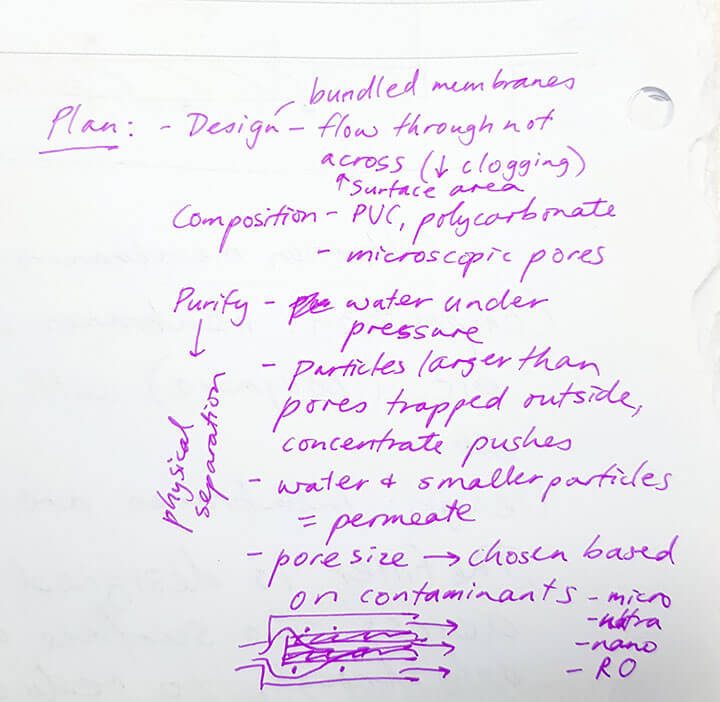 bundled membranes
Plan: - Design - flow through not
across (↓ clogging)
↑ surface area
Composition - PVC, polycarbonate
- microscopic pores
Purify - water under
pressure
- particles larger than
pores trapped outside,
concentrate pushes
- water & smaller particles
= permeate
- pore size → chosen based
on contaminants - micro
- ultra
- nano
- RO
physical
separation